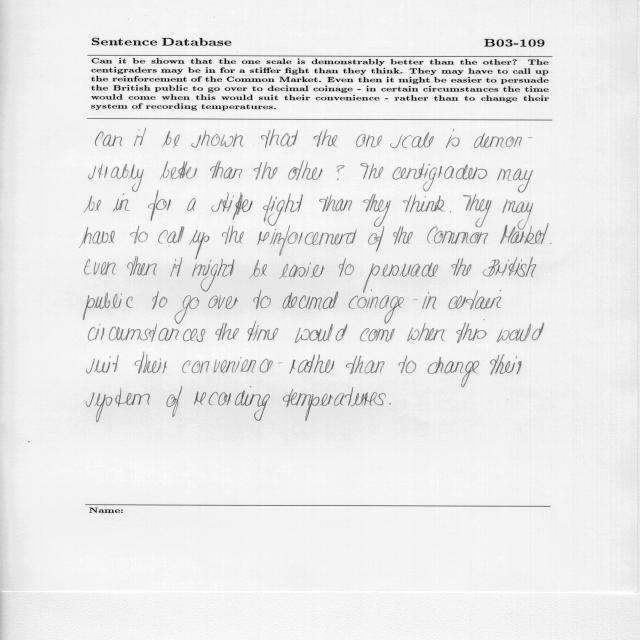 Sentence Database B03-109
Can it be shown that the one scale is demonstrably better than the other? The
centigraders may be in for a stiffer fight than they think. They may have to call up
the reinforcement of the Common Market. Even then it might be easier to persuade
the British public to go over to decimal coinage - in certain circumstances the time
would come when this would suit their convenience - rather than to change their
system of recording temperatures.
Can it be shown that the one scale is demon-
strably better than the other? The centigraders may
be in for a stiffer fight than they think. They may
have to call up the reinforcement of the Common Market.
Even then it might be easier to persuade the British
public to go over to decimal coinage - in certain
circumstances the time would come when this would
suit their convenience - rather than to change their
system of recording temperatures.
Name: